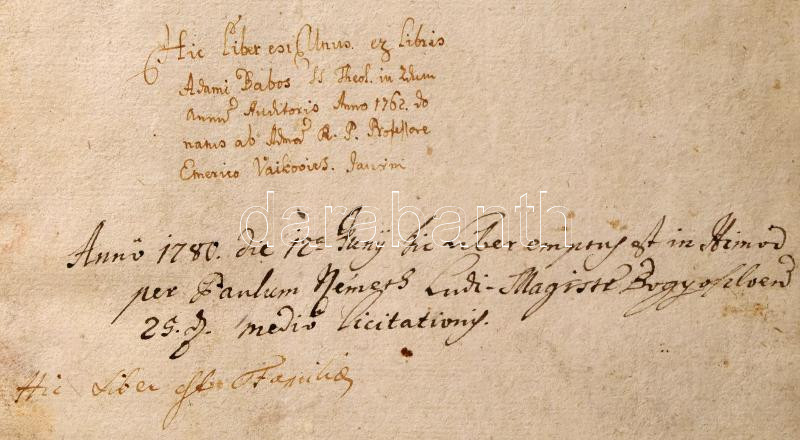 Hic Liber est Unus. ex Libris
Adami Babos SS Theol. in 2dum
annum Auditoris Anno 1762. do
natus ab Admod R. P. Professore
Emerico Vaikovics. Jaurini
darabanth
Anno 1780. die 12a Junÿ hic liber emptus est in Himod
per Paulum Németh Ludi-Magistr
25. medio licitationis.
Hic Liber est Familiæ